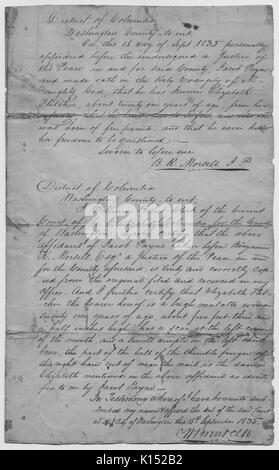 District of Columbia
Washington County to wit.
On this 15 day of Sept 1835 personally
appeared before the undersigned a Justice of
the Peace in and for said County Jacob Payne
and made oath on the Holy Evangely of Al-
mighty God, that he has known Elizabeth
Fletcher, about twenty one years of age, from her
infancy
was born of free parents, and that he never knew
her freedom to be questioned
Sworn to before me
B. K. Morsell J. P
District of Columbia
Washington County to wit.
of the Circuit
Court of for the County
of Washington that the above
affidavit of Jacob Payne taken before Benjamin
K. Morsell Esqr a Justice of the Peace in and
for the County aforesaid, is truly and correctly cop-
ied from the original filed and recorded in my
Office. And I further certify that Elizabeth Flet-
cher the bearer hereof is a high mulatto woman
twenty one years of age, about five feet three and
half inches high, has a scar at the left corner
of the mouth, and a on the left cheek
bone, the part of the ball of the thumb
right hand cut off near the nail is the same
Elizabeth mentioned in the above affidavit as identi-
fied to me by Jacob Payne
In Testimony whereof I have hereunto sub-
scribed my name & affixed the seal of the said Court
at the City of Washington this 15th September 1835.
Wm Brent Clk
alamy
alamy
Image ID: K152B2
www.alamy.com